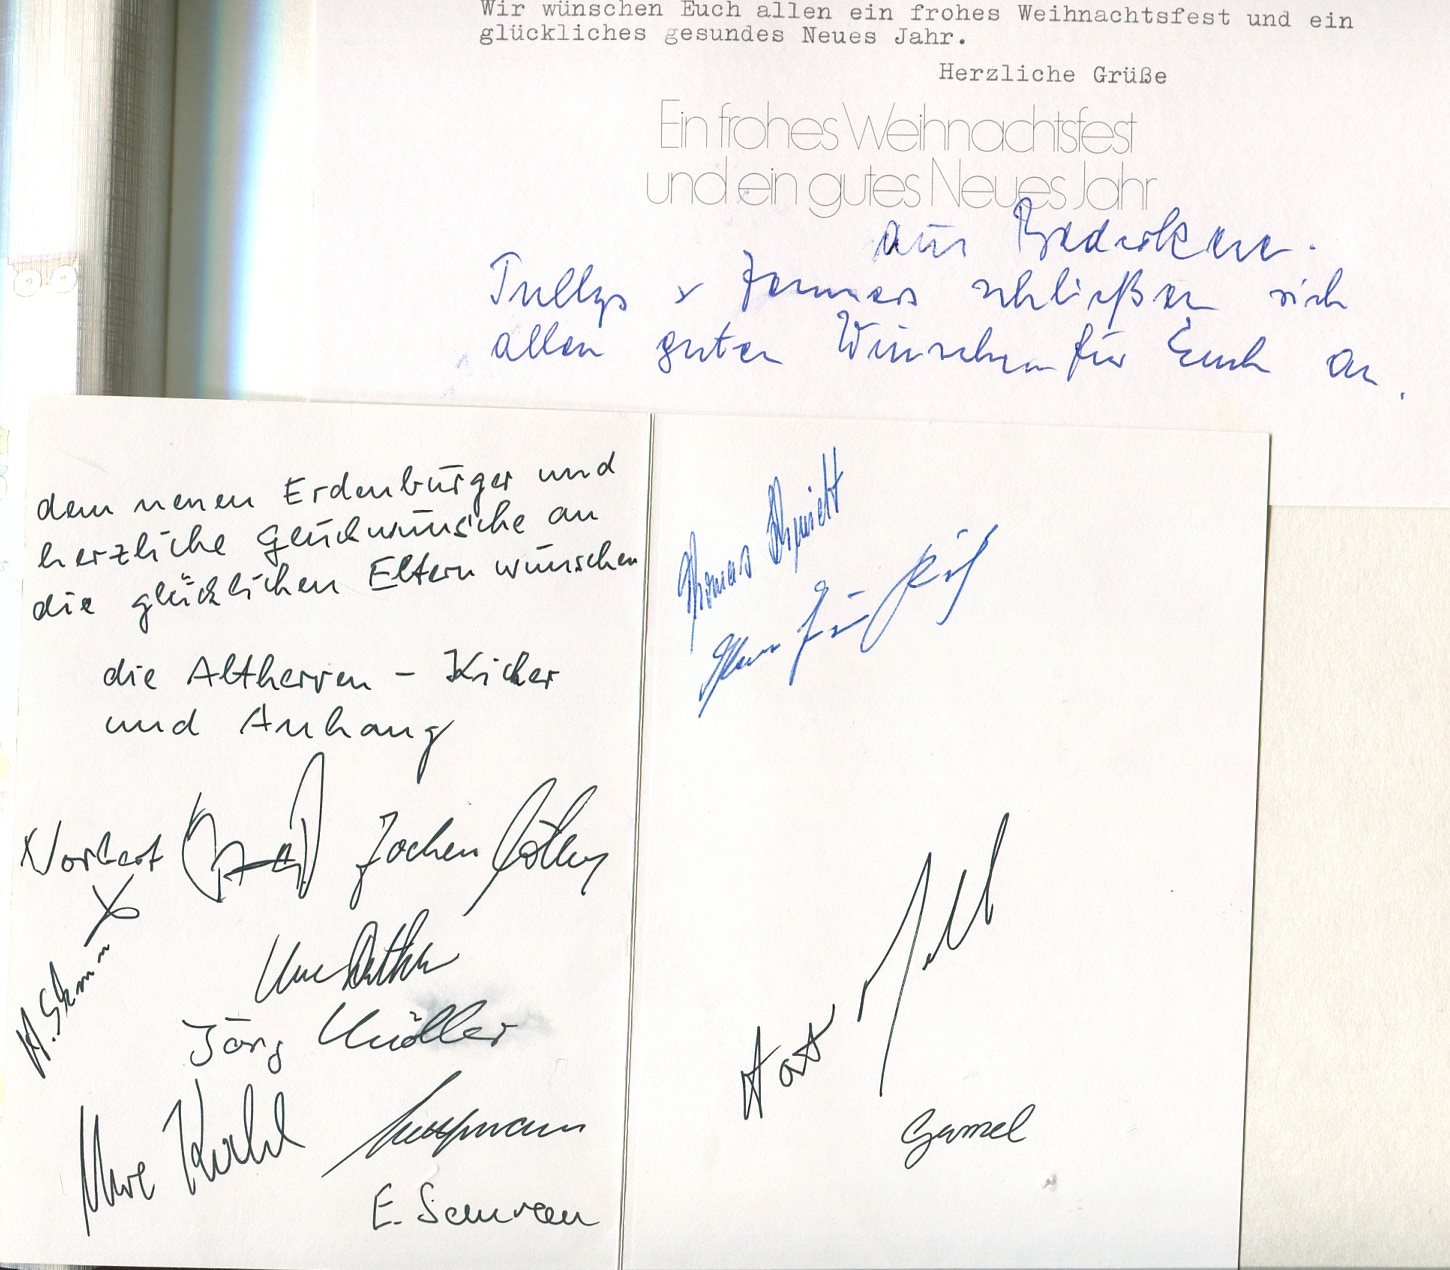 Wir wünschen Euch allen ein frohes Weihnachtsfest und ein
glückliches gesundes Neues Jahr.
Herzliche Grüße
Ein frohes Weihnachtsfest
und ein gutes Neues Jahr
aus
Tullys schließen sich
allen guten Wünschen für Euch an.
dem neuen Erdenbürger und
herzliche Glückwünsche an
die glücklichen Eltern wünschen
die Altherren - Kicker
und Anhang
Norbert
Jochen
Uwe
Jörg Müller
Uwe
E.
Thomas Schmidt
Hans
Horst